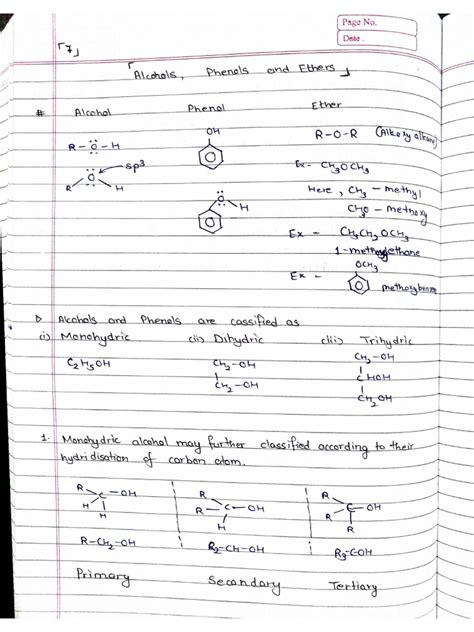 Page No.
Date .
「7」
「Alcohols, Phenols and Ethers」
# Alcohol Phenol Ether
R-O-H OH R-O-R (Alkoxy alkane)
sp³ Ex- CH₃OCH₃
R O H O H Here, CH₃ - methyl
CH₃O - methoxy
Ex - CH₃CH₂OCH₃
1-methoxyethane
OCH₃
Ex - methoxybenzene
Alcohols and Phenols are cassified as
(i) Monohydric (ii) Dihydric (iii) Trihydric
C₂H₅OH CH₂-OH CH₂-OH
CH₂-OH CHOH
CH₂OH
1. Monohydric alcohol may further classified according to their
hydridisation of carbon atom.
R C-OH R R-C-OH R R C-OH
H H H R
R-CH₂-OH R₂-CH-OH R₃-C-OH
Primary Secondary Tertiary